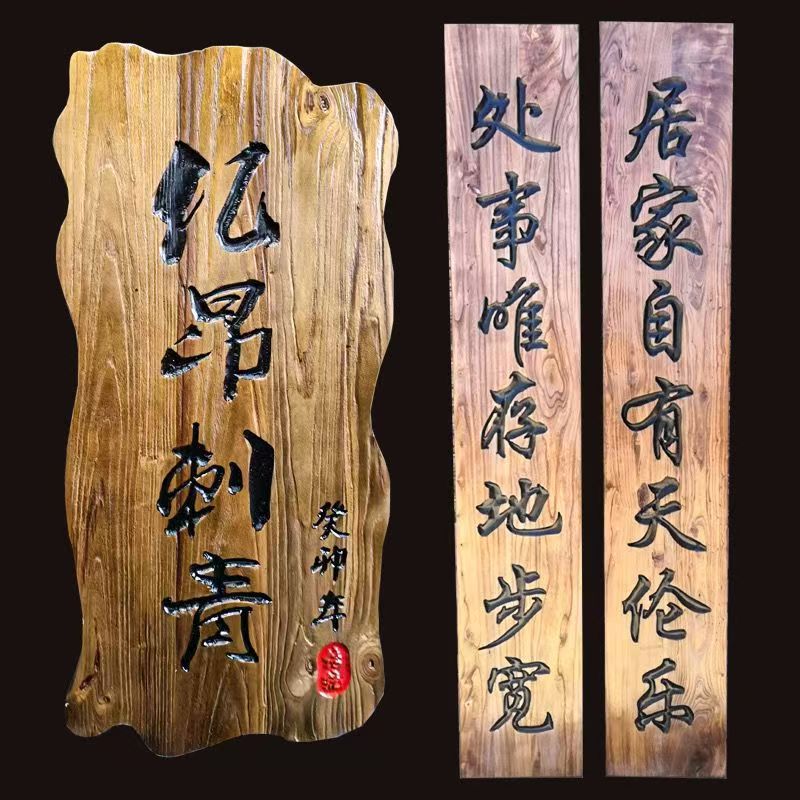 昂刺青
癸卯年
居家自有天伦乐
处事唯存地步宽